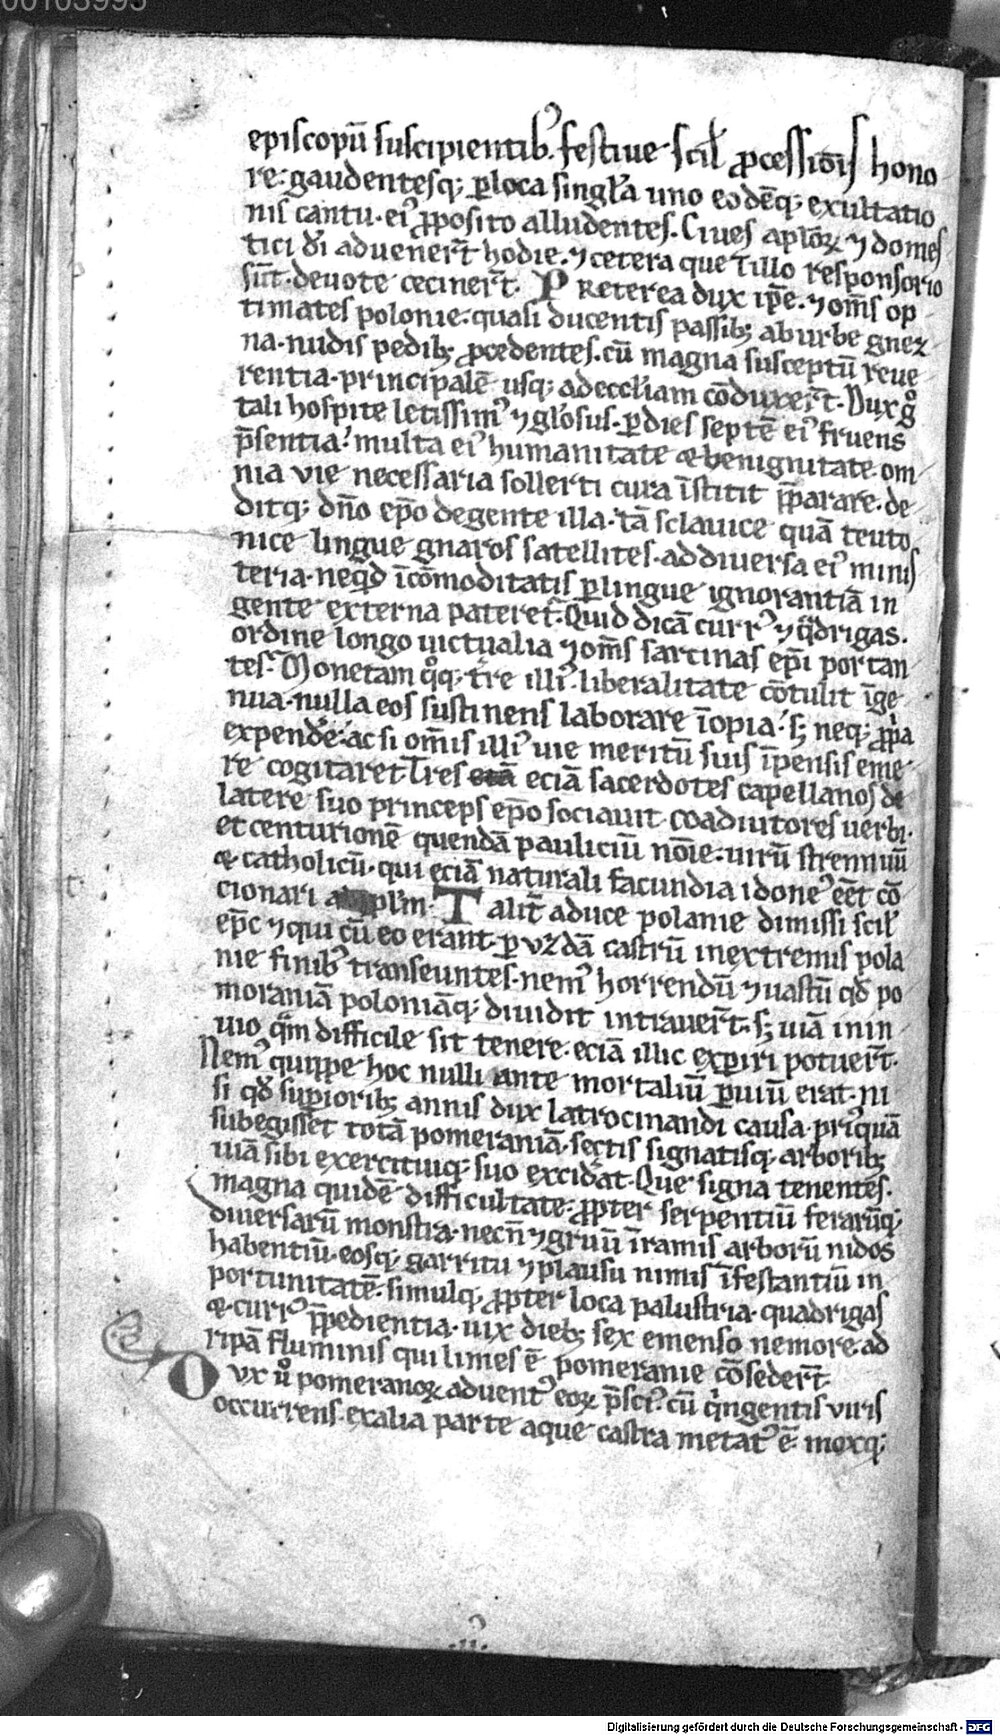 00103993
episcopū suscipientibꝰ. festiue scił ꝓcessiōis hono
re. gaudentesq; ꝑ loca singĺa uno eodēq; exultatio
nis cantu. eiꝰ ꝓposito alludentes. Ciues apłoꝝ ⁊ domes
tici dī aduener̄t hodie. ⁊ cetera que ī illo responsorio
sūt. deuote cecinert̄. Preterea dux ip̄e. ⁊ om̄s op
timates polonie. quasi ducentis passib; ab urbe gnez
na. nudis pedib; ꝓcedentes. cū magna susceptū reue
rentia. principalē usq; ad eccl̄iam cōduxer̄t. Dux gͦ
tali hospite letissimꝰ ⁊ glōsus. ꝑ dies septē eiꝰ fruens
p̄sentia. multa ei humanitate & benignitate. om
nia vie necessaria sollerti cura īstitit p̄parare. de
ditq; dn̄o ep̄o de gente illa. tā sclauice quā teuto
nice lingue gnaros satellites. ad diuersa eiꝰ minis
teria. ne qͥd īcōmoditatis ꝑ lingue ignorantiā in
gente externa pateret̄. Quid dicā currꝰ ⁊ qͣdrigas.
ordine longo uictualia ⁊ om̄s sarcinas ep̄i portan
tes. Monetam qͦq; tr̄e illiꝰ. liberalitate cōtulit īge
nua. nulla eos sustinens laborare īopia. s; neq; ꝓpͥa
expendēe. ac si om̄is illiꝰ uie meritū suis īpensis eme
re cogitaret. Tres etā eciā sacerdotes capellanos de
latere suo princeps ep̄o sociauit. coadiutores uerbi.
et centurionē quendā pauliciū noīe. uirū strennuū
& catholicū. qui eciā naturali facundia idoneꝰ eēt cō
cionari a pl̄m. Talit̄ a duce polanie dimissi scił
ep̄c ⁊ qui cū eo erant. ꝑ vzdā castrū in extremis pola
nie finibꝰ transeuntes. nemꝰ horrendū ⁊ uastū qd̄ po
moraniā poloniāq; diuidit intrauer̄t. s; uiā in in
uio qͣm difficile sit tenere. eciā illic exꝑiri potuer̄t.
Nemꝰ quippe hoc nulli ante mortaliū ꝑuiū erat. ni
si qd̄ suꝑiorib; annis dux latrocinandi causa. priꝰquā
subegisset totā pomeraniā. sectis signatisq; arborib;
uiā sibi exercituiq; suo exciderat. Que signa tenentes.
magna quidē difficultate. ꝓpter serpentiū ferarūq;
diuersarū monstra. necn̄ ⁊ gruū ī ramis arborū nidos
habentiū. eosq; garritu ⁊ plausu nimis īfestantiū in
portunitatē. simulq; ꝓpter loca palustria. quadrigas
& currꝰ p̄pedientia. uix dieb; sex emenso nemore. ad
ripā fluminis qui limes ē pomeranie cōseder̄t.
Dvx uͦ pomeranoꝝ aduentꝰ eoꝝ p̄sciꝰ. cū qͥngentis viris
occurrens. ex alia parte aque castra metatꝰ ē. moxq;
.ii.
Digitalisierung gefördert durch die Deutsche Forschungsgemeinschaft - DFG